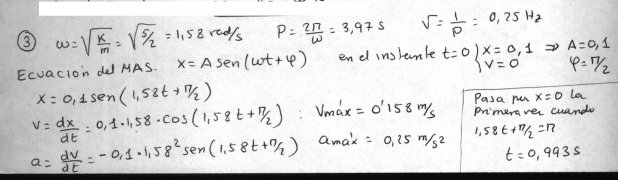 ③ ω=√K/m = √5/2 = 1,58 rad/s P= 2π/ω = 3,97 s √= 1/P = 0,25 Hz
Ecuación del MAS. X= A sen(ωt+φ) en el instante t=0 } X= 0,1 ⇒ A=0,1
V=0 φ=π/2
X= 0,1 sen(1,58t+π/2)
V= dx/dt = 0,1·1,58·cos(1,58t+π/2) : Vmáx= 0'158 m/s
a= dv/dt = -0,1·1,58² sen(1,58t+π/2) amax= 0,25 m/s2
Pasa por X=0 la
primera vez cuando
1,58t+π/2=π
t=0,993s